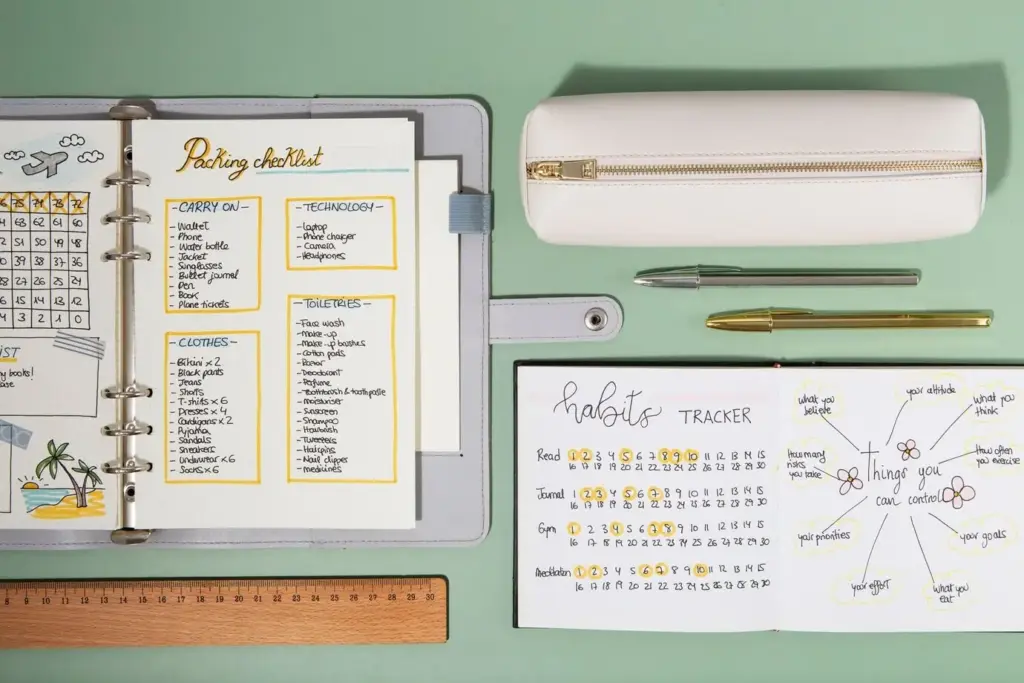 76 75 74 73 72
64 63 62 61 60
52 51 50 49 48
39 38 37 36
28 27 26 25 24
16 15 14 13 12
4 3 2 1 0
Packing checklist
-CARRY ON-
-Wallet
-Phone
-Water bottle
-Jacket
-Sunglasses
-Bullet journal
-Pen
-Book
-Plane tickets
-CLOTHES-
-Bikini x2
-Black pants
-Jeans
-Shorts
-T-shirts x 6
-Dresses x 4
-Cardigans x 2
-Pyjama
-Sandals
-Sneakers
-Underwear x6
-Socks x 6
-TECHNOLOGY-
-Laptop
-Phone charger
-Camera
-Headphones
-TOILETRIES-
-Face wash
-Make-up
-Make-up brushes
-Cotton pads
-Razor
-Deodorant
-Perfume
-Toothbrush & toothpaste
-Moisturiser
-Sunscreen
-Shampoo
-Hairbrush
-Tweezers
-Hairpins
-Nail clipper
-medicines
8 9 10 11 12 13 14 15 16 17 18 19 20 21 22 23 24 25 26 27 28 29 30
habits TRACKER
Read 1 2 3 4 5 6 7 8 9 10 11 12 13 14 15
16 17 18 19 20 21 22 23 24 25 26 27 28 29 30
Journal 1 2 3 4 5 6 7 8 9 10 11 12 13 14 15
16 17 18 19 20 21 22 23 24 25 26 27 28 29 30
Gym 1 2 3 4 5 6 7 8 9 10 11 12 13 14 15
16 17 18 19 20 21 22 23 24 25 26 27 28 29 30
Meditation 1 2 3 4 5 6 7 8 9 10 11 12 13 14 15
16 17 18 19 20 21 22 23 24 25 26 27 28 29 30
Things you
can control
your attitude
what you
think
How often
you exercise
your goals
what you
eat
your effort
your priorities
How many
risks
you take
what you
believe